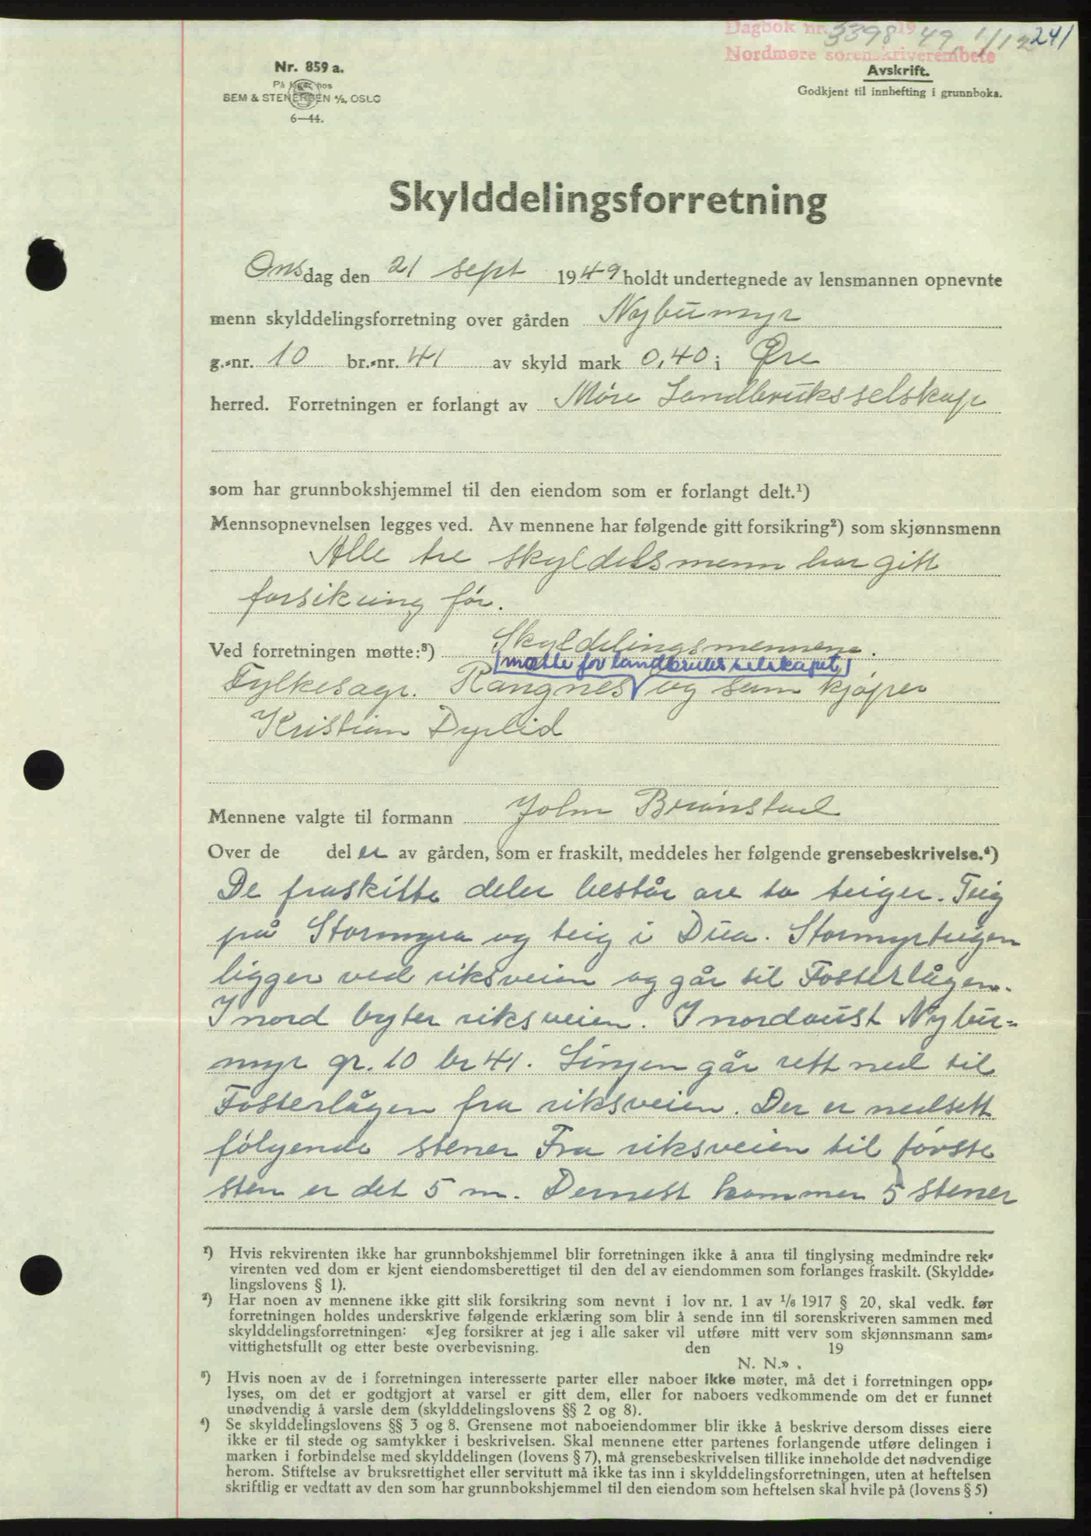 Dagbok nr. 3398 1949 1/12 241
Nordmøre sorenskriverembete
Nr. 859 a.
På lager hos
SEM & STENERSEN A/S, OSLO
6—44.
Avskrift.
Godkjent til innhefting i grunnboka.
Skylddelingsforretning
Onsdag den 21 sept 1949 holdt undertegnede av lensmannen opnevnte
menn skylddelingsforretning over gården Nybumyr
g.-nr. 10 br.-nr. 41 av skyld mark 0,40 i Øre
herred. Forretningen er forlangt av Møre Landbruksselskap
som har grunnbokshjemmel til den eiendom som er forlangt delt.¹)
Mennsopnevnelsen legges ved. Av mennene har følgende gitt forsikring²) som skjønnsmenn
Alle tre skyldelsmenn har gitt
forsikring før.
Ved forretningen møtte:³) Skyldelingsmennene.
(møtte for landbruksselskapet)
Fylkesagr. Rangnes og som kjøper
Kristian Dyrlid
Mennene valgte til formann John Brunstad
Over de deler av gården, som er fraskilt, meddeles her følgende grensebeskrivelse.⁴)
De fraskilte deler består are to teiger. Teig
på Stormyra og teig i Dua. Stormyrteigen
ligger ved riksveien og går til Fosterlågen.
I nord byter riksveien. I nordaust Nybu-
myr gr. 10 br 41. Linjen går rett ned til
Fosterlågen fra riksveien. Der er nedsett
følgende stener Fra riksveien til første
sten er det 5 m. Dernest kommer 5 stener
¹) Hvis rekvirenten ikke har grunnbokshjemmel blir forretningen ikke å anta til tinglysing medmindre rek-
virenten ved dom er kjent eiendomsberettiget til den del av eiendommen som forlanges fraskilt. (Skyldde-
lingslovens § 1).
²) Har noen av mennene ikke gitt slik forsikring som nevnt i lov nr. 1 av 1/6 1917 § 20, skal vedk. før
forretningen holdes underskrive følgende erklæring som blir å sende inn til sorenskriveren sammen med
skylddelingsforretningen: «Jeg forsikrer at jeg i alle saker vil utføre mitt verv som skjønnsmann sam-
vittighetsfullt og etter beste overbevisning. den 19
N. N.».
³) Hvis noen av de i forretningen interesserte parter eller naboer ikke møter, må det i forretningen opp-
lyses, om det er godtgjort at varsel er gitt dem, eller for naboers vedkommende om det er funnet
unødvendig å varsle dem (skylddelingslovens §§ 2 og 8).
⁴) Se skylddelingslovens §§ 3 og 8. Grensene mot naboeiendommer blir ikke å beskrive dersom disses eiere
ikke er til stede og samtykker i beskrivelsen. Skal mennene etter partenes forlangende utføre delingen i
marken i forbindelse med skylddelingen (lovens § 7), må grensebeskrivelsen tillike inneholde det nødvendige
herom. Stiftelse av bruksrettighet eller servitutt må ikke tas inn i skylddelingsforretningen, uten at heftelsen
skriftlig er vedtatt av den som har grunnbokshjemmel til den eiendom som heftelsen skal hvile på (lovens § 5)